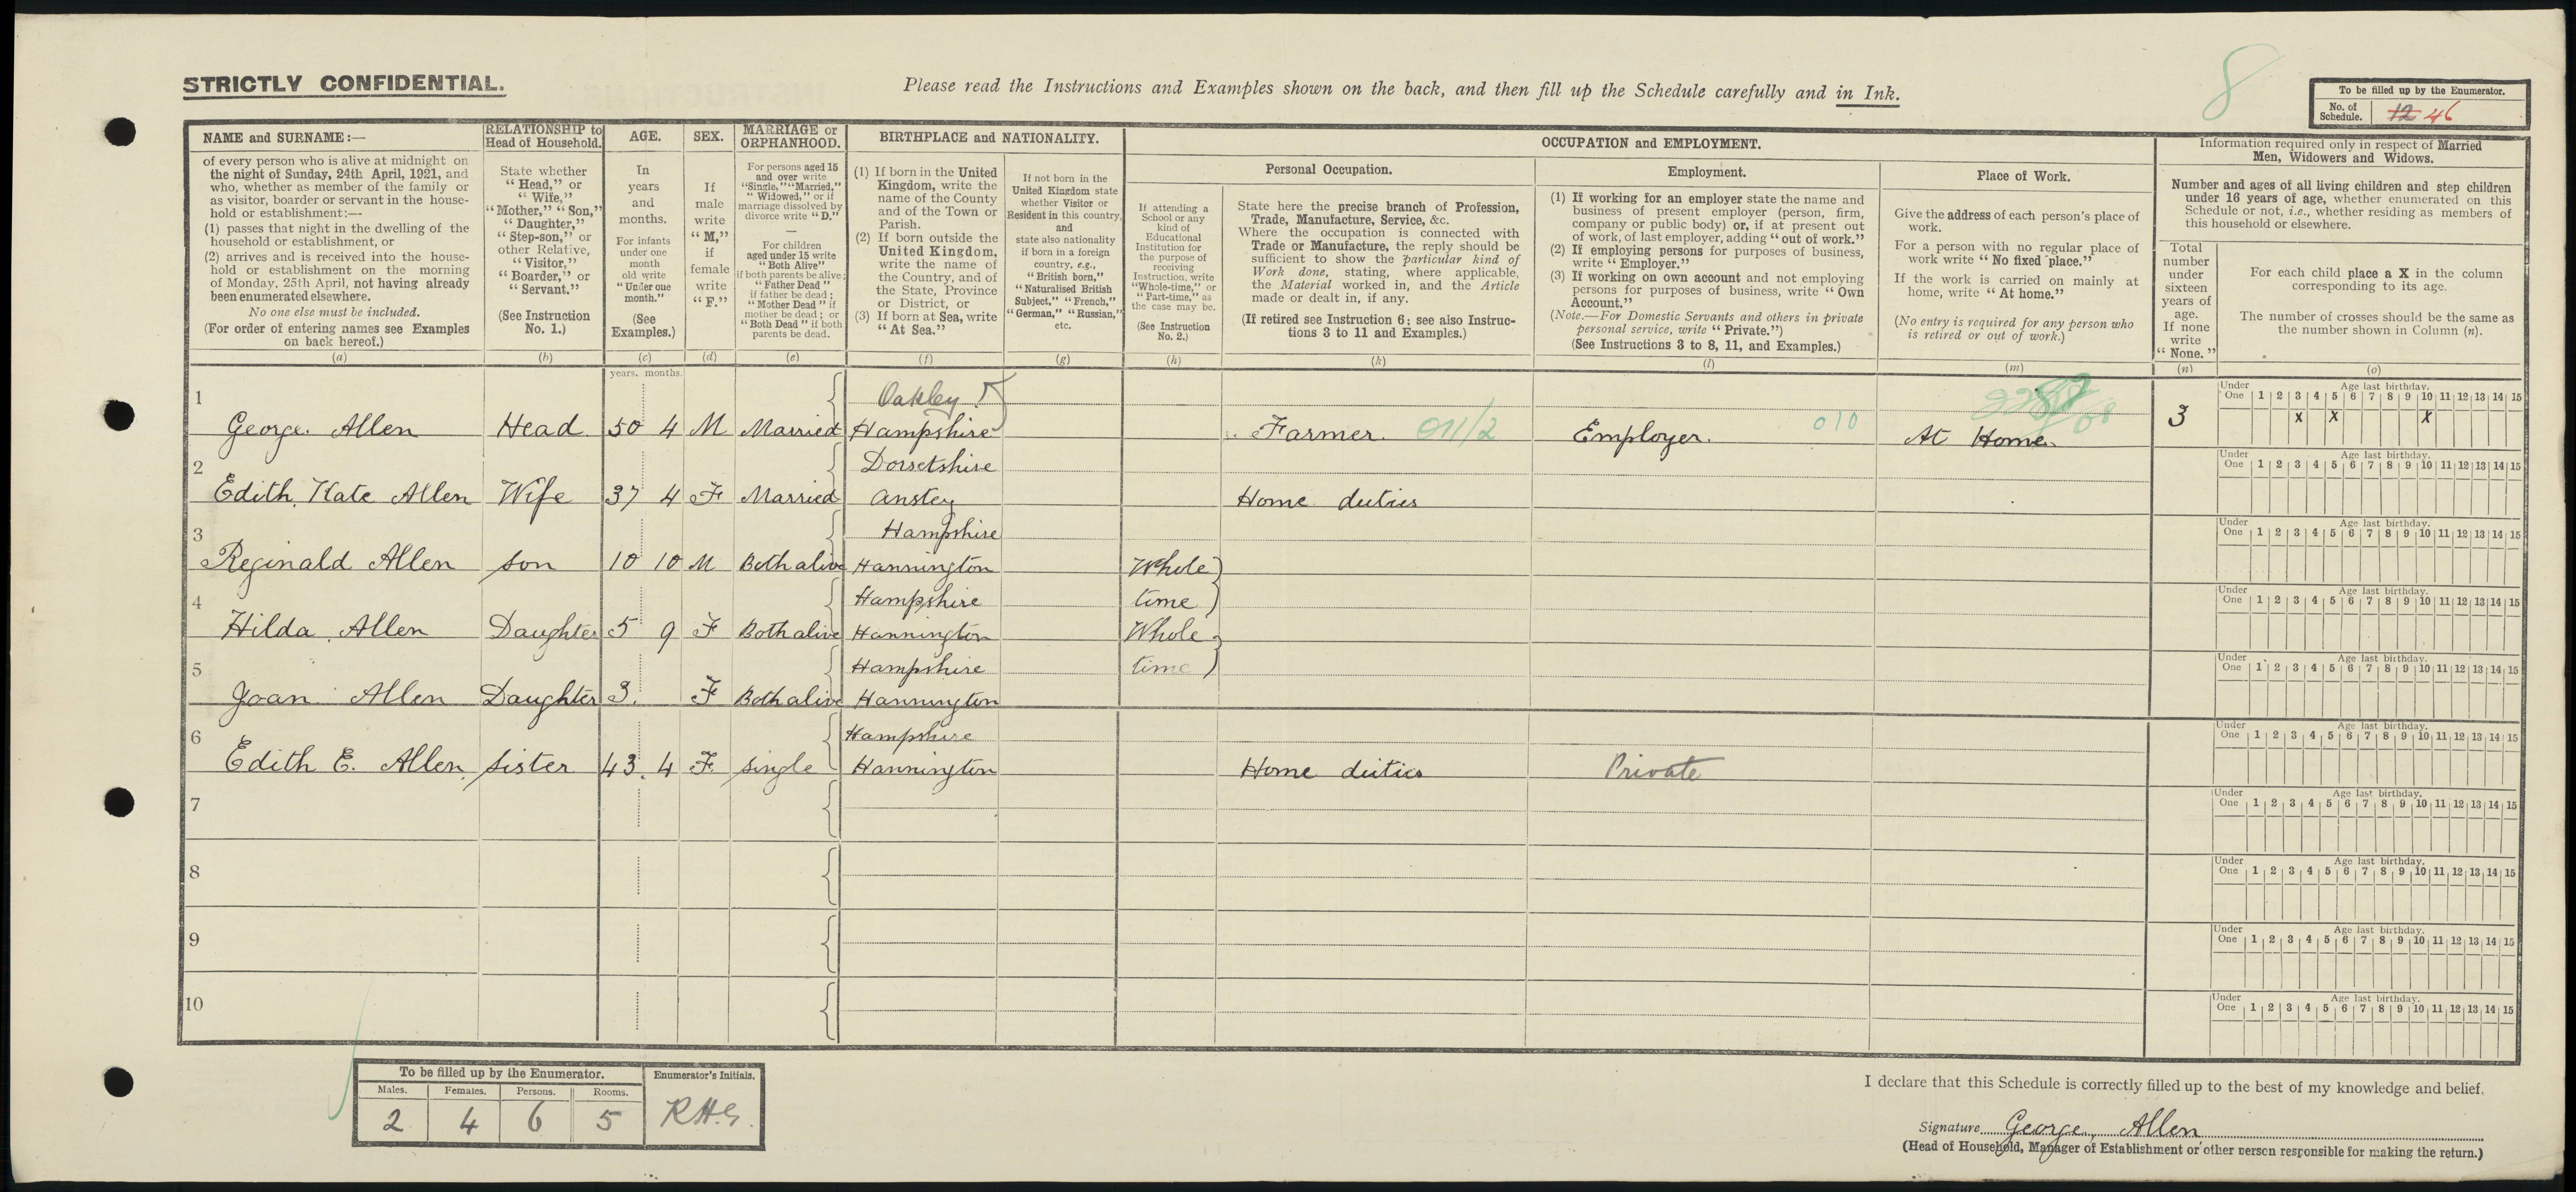 STRICTLY CONFIDENTIAL.
Please read the Instructions and Examples shown on the back, and then fill up the Schedule carefully and in Ink.
8
To be filled up by the Enumerator.
No. of Schedule. 12 46
NAME and SURNAME:—
of every person who is alive at midnight on
the night of Sunday, 24th April, 1921, and
who, whether as member of the family or
as visitor, boarder or servant in the house-
hold or establishment:—
(1) passes that night in the dwelling of the
household or establishment, or
(2) arrives and is received into the house-
hold or establishment on the morning
of Monday, 25th April, not having already
been enumerated elsewhere.
No one else must be included.
(For order of entering names see Examples
on back hereof.)
(a)
RELATIONSHIP to
Head of Household.
State whether
“Head,” or
“Wife,”
“Mother,” “Son,”
“Daughter,”
“Step-son,” or
other Relative,
“Visitor,”
“Boarder,” or
“Servant.”
(See Instruction
No. 1.)
(b)
AGE.
In
years
and
months.
For infants
under one
month
old write
“Under one
month.”
(See
Examples.)
(c)
SEX.
If
male
write
“M,”
if
female
write
“F.”
(d)
MARRIAGE or
ORPHANHOOD.
For persons aged 15
and over write
“Single,” “Married,”
“Widowed,” or if
marriage dissolved by
divorce write “D.”
—
For children
aged under 15 write
“Both Alive”
if both parents be alive;
“Father Dead”
if father be dead;
“Mother Dead” if
mother be dead; or
“Both Dead” if both
parents be dead.
(e)
BIRTHPLACE and NATIONALITY.
(1) If born in the United
Kingdom, write the
name of the County
and of the Town or
Parish.
(2) If born outside the
United Kingdom,
write the name of
the Country, and of
the State, Province
or District, or
(3) If born at Sea, write
“At Sea.”
(f)
If not born in the
United Kingdom state
whether Visitor or
Resident in this country,
and
state also nationality
if born in a foreign
country, e.g.,
“British born,”
“Naturalised British
Subject,” “French,”
“German,” “Russian,”
etc.
(g)
OCCUPATION and EMPLOYMENT.
Personal Occupation.
If attending a
School or any
kind of
Educational
Institution for
the purpose of
receiving
Instruction, write
“Whole-time,” or
“Part-time,” as
the case may be.
(See Instruction
No. 2.)
(h)
State here the precise branch of Profession,
Trade, Manufacture, Service, &c.
Where the occupation is connected with
Trade or Manufacture, the reply should be
sufficient to show the particular kind of
Work done, stating, where applicable,
the Material worked in, and the Article
made or dealt in, if any.
(If retired see Instruction 6: see also Instruc-
tions 3 to 11 and Examples.)
(k)
Employment.
(1) If working for an employer state the name and
business of present employer (person, firm,
company or public body) or, if at present out
of work, of last employer, adding “out of work.”
(2) If employing persons for purposes of business,
write “Employer.”
(3) If working on own account and not employing
persons for purposes of business, write “Own
Account.”
(Note.—For Domestic Servants and others in private
personal service, write “Private.”)
(See Instructions 3 to 8, 11, and Examples.)
(l)
Place of Work.
Give the address of each person's place of
work.
For a person with no regular place of
work write “No fixed place.”
If the work is carried on mainly at
home, write “At home.”
(No entry is required for any person who
is retired or out of work.)
(m)
Information required only in respect of Married
Men, Widowers and Widows.
Number and ages of all living children and step children
under 16 years of age, whether enumerated on this
Schedule or not, i.e., whether residing as members of
this household or elsewhere.
Total
number
under
sixteen
years of
age.
If none
write
“None.”
(n)
For each child place a X in the column
corresponding to its age.
The number of crosses should be the same as
the number shown in Column (n).
(o)
years. months.
Under One Age last birthday. 1 2 3 4 5 6 7 8 9 10 11 12 13 14 15
1 Oakley
George Allen Head 50 4 M Married Hampshire Farmer. 011/2 Employer. 010 At Home. 3 x x x
Under One Age last birthday. 1 2 3 4 5 6 7 8 9 10 11 12 13 14 15
2 Dorsetshire
Edith Kate Allen Wife 37 4 F Married Anstey Home duties
Under One Age last birthday. 1 2 3 4 5 6 7 8 9 10 11 12 13 14 15
3 Hampshire
Reginald Allen son 10 10 M Both alive Hannington Whole
Under One Age last birthday. 1 2 3 4 5 6 7 8 9 10 11 12 13 14 15
4 Hampshire time
Hilda Allen Daughter 5 9 F Both alive Hannington Whole
Under One Age last birthday. 1 2 3 4 5 6 7 8 9 10 11 12 13 14 15
5 Hampshire time
Joan Allen Daughter 3. F Both alive Hannington
Under One Age last birthday. 1 2 3 4 5 6 7 8 9 10 11 12 13 14 15
6 Hampshire
Edith E. Allen sister 43. 4 F. single Hannington Home duties Private
Under One Age last birthday. 1 2 3 4 5 6 7 8 9 10 11 12 13 14 15
7
Under One Age last birthday. 1 2 3 4 5 6 7 8 9 10 11 12 13 14 15
8
Under One Age last birthday. 1 2 3 4 5 6 7 8 9 10 11 12 13 14 15
9
Under One Age last birthday. 1 2 3 4 5 6 7 8 9 10 11 12 13 14 15
10
To be filled up by the Enumerator.
Males. Females. Persons. Rooms.
2 4 6 5
Enumerator's Initials.
R.H.G.
I declare that this Schedule is correctly filled up to the best of my knowledge and belief.
Signature George Allen
(Head of Household, Manager of Establishment or other person responsible for making the return.)